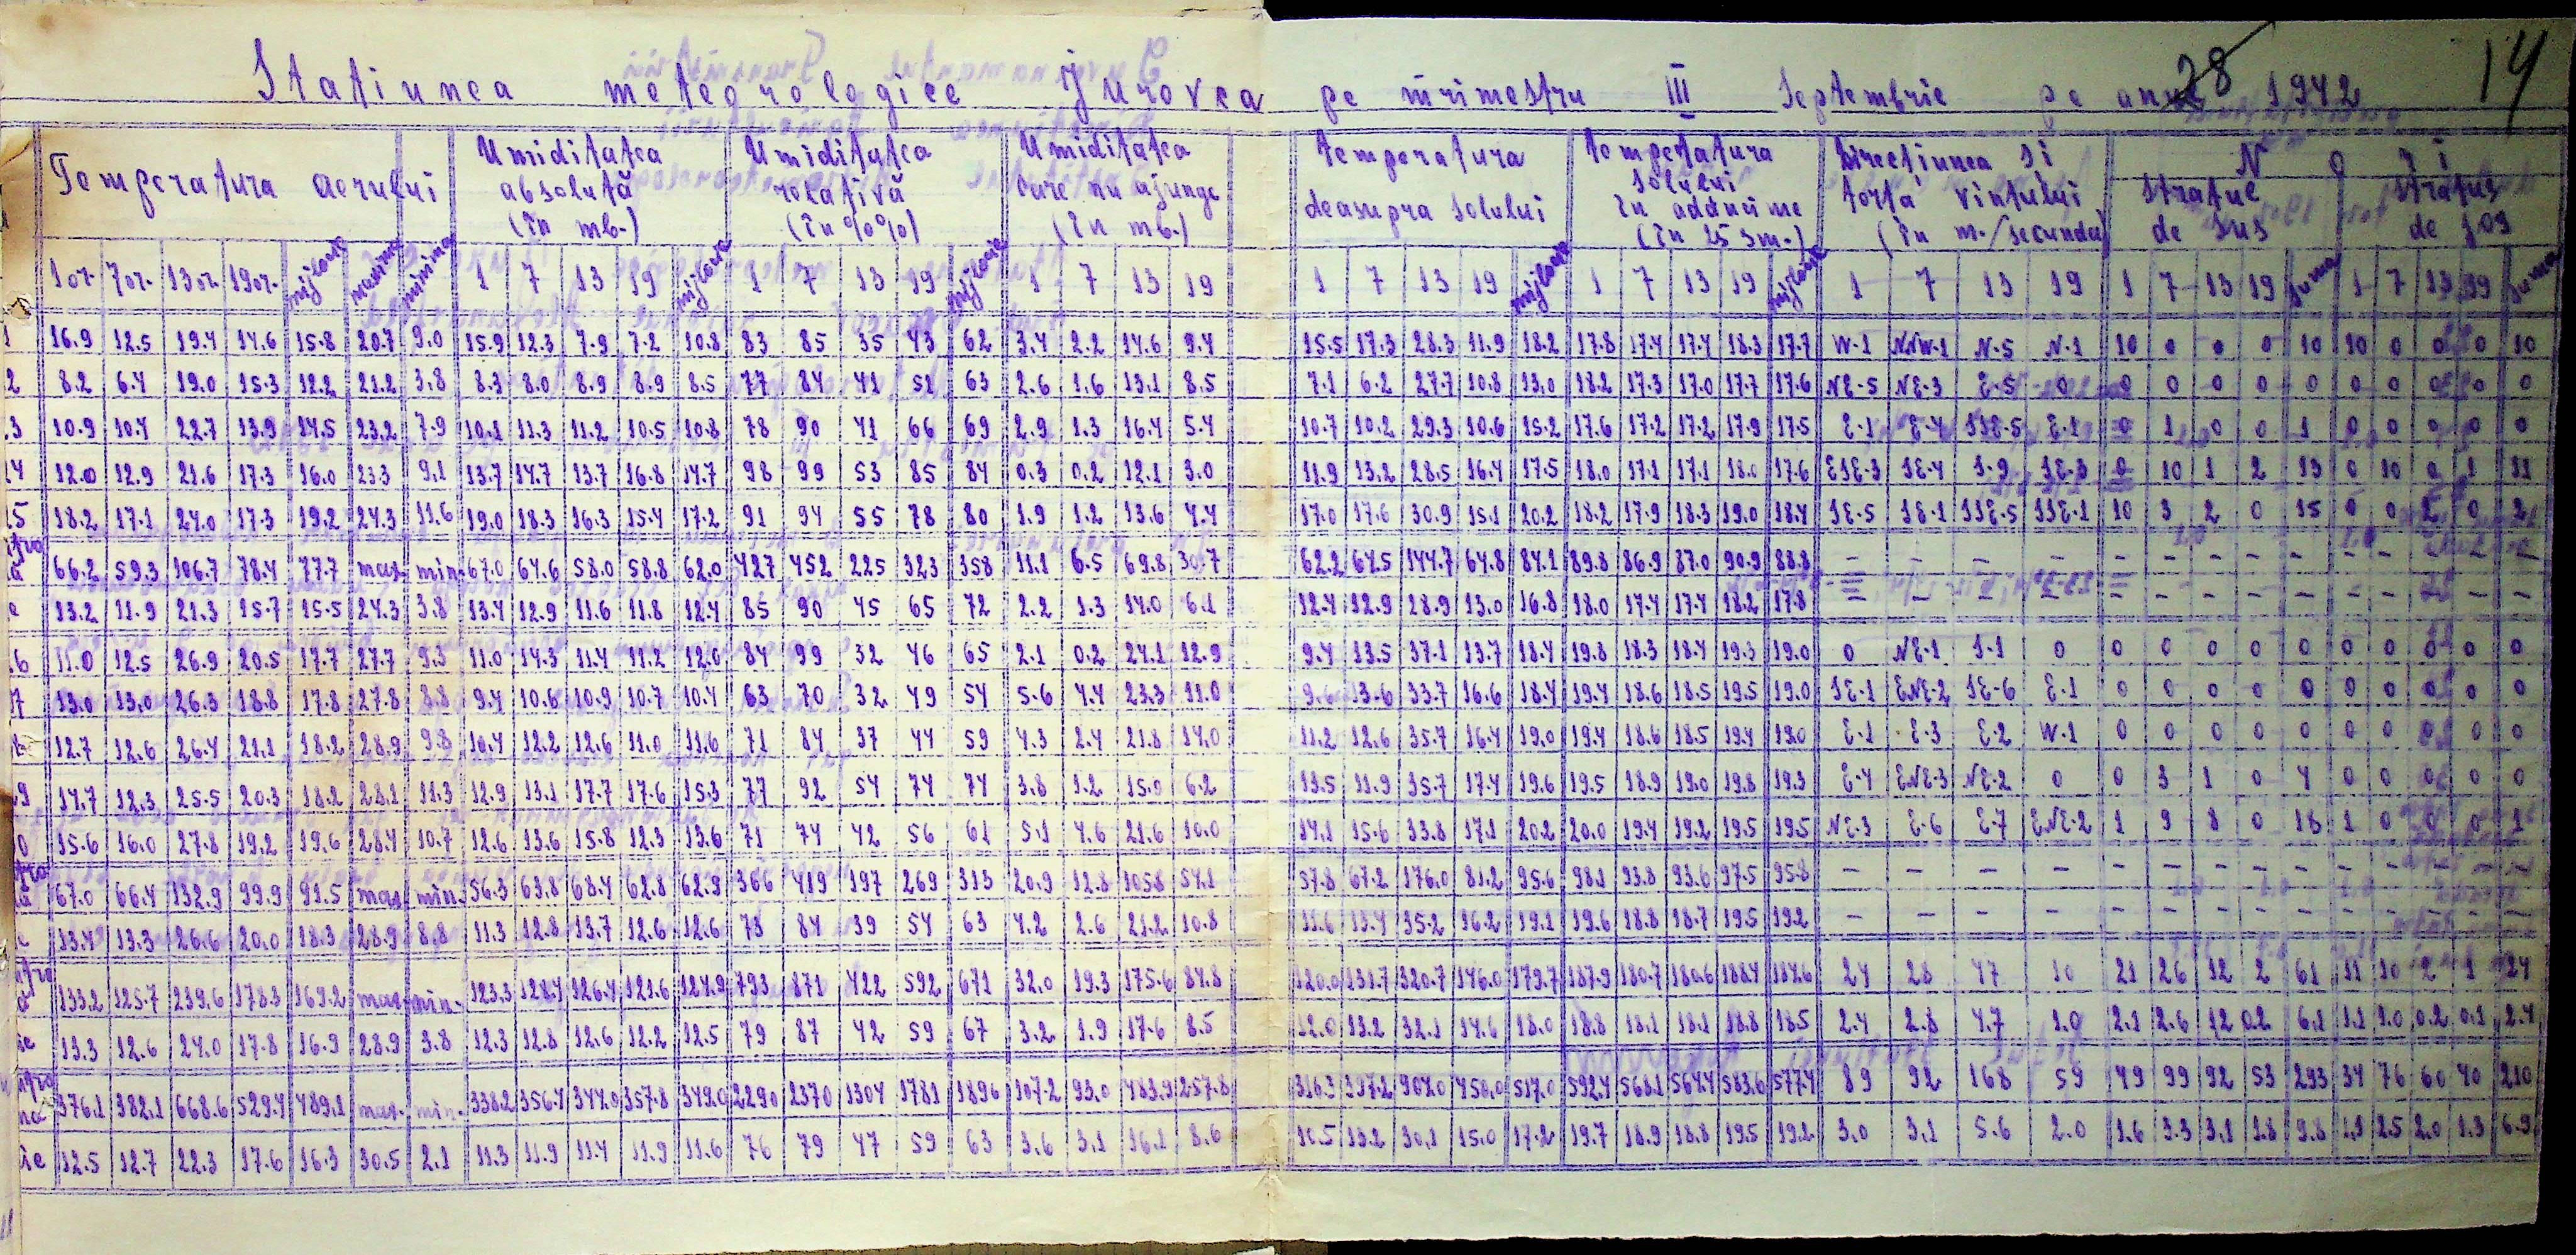 28 14
Statiunea meteorologice Jurovca pe trimestru III Septembrie pe anul 1942
Temperatura aerului Umiditatea absolută (în mb.) Umiditatea relativă (în %%) Umiditatea care nu ajunge (în mb.) temperatura deasupra solului temperatura solului în adâncime (în 25 sm.) Directiunea si forta vintului (în m./secunda) N o r i
stratul de sus stratus de jos
1 or. 7 or. 13 or. 19 or. mijlocie maxima minima 1 7 13 19 mijlocie 1 7 13 19 mijlocie 1 7 13 19 1 7 13 19 mijlocie 1 7 13 19 mijlocie 1 7 13 19 1 7 13 19 suma 1 7 13 19 suma
1 16.9 12.5 19.4 14.6 15.8 20.7 9.0 15.9 12.3 7.9 7.2 10.8 83 85 35 43 62 3.4 2.2 14.6 9.4 15.5 17.3 28.3 11.9 18.2 17.8 17.4 17.4 18.3 17.7 W-1 NNW-1 N-5 N-1 10 0 0 0 10 10 0 0 0 10
2 8.2 6.4 19.0 15.3 12.2 21.2 3.8 8.3 8.0 8.9 8.9 8.5 77 84 41 51 63 2.6 1.6 13.1 8.5 7.1 6.2 27.7 10.8 13.0 18.2 17.3 17.0 17.7 17.6 NE-5 NE-3 E-5 0 0 0 0 0 0 0 0 0 0 0
3 10.9 10.4 22.7 13.9 14.5 23.2 7.9 10.1 11.3 11.2 10.5 10.8 78 90 41 66 69 2.9 1.3 16.4 5.4 10.7 10.2 29.3 10.6 15.2 17.6 17.2 17.2 17.9 17.5 E-1 E-4 SSE-5 E-1 0 1 0 0 1 0 0 0 0 0
4 12.0 12.9 21.6 17.3 16.0 23.3 9.1 13.7 14.7 13.7 16.8 14.7 98 99 53 85 84 0.3 0.2 12.1 3.0 11.9 13.2 28.5 16.4 17.5 18.0 17.1 17.1 18.0 17.6 ESE-3 SE-4 S-9 SE-3 0 10 1 2 13 0 10 0 1 11
5 18.2 17.1 24.0 17.3 19.2 24.3 11.6 19.0 18.3 16.3 15.4 17.2 91 94 55 78 80 1.9 1.2 13.6 4.4 17.0 17.6 30.9 15.1 20.2 18.2 17.9 18.3 19.0 18.4 SE-5 SE-1 SSE-5 SSE-1 10 3 2 0 15 0 0 2 0 2
66.2 59.3 106.7 78.4 77.7 max. min. 67.0 64.6 58.0 58.8 62.0 427 452 225 323 358 11.1 6.5 69.8 30.7 62.2 64.5 144.7 64.8 84.1 89.8 86.9 87.0 90.9 88.8 - - - - - - - - - - - - - -
13.2 11.9 21.3 15.7 15.5 24.3 3.8 13.4 12.9 11.6 11.8 12.4 85 90 45 65 72 2.2 1.3 14.0 6.1 12.4 12.9 28.9 13.0 16.8 18.0 17.4 17.4 18.2 17.8 - - - - - - - - - - - - - -
6 11.0 12.5 26.9 20.5 17.7 27.7 9.3 11.0 14.3 11.4 11.2 12.0 84 99 32 46 65 2.1 0.2 24.1 12.9 9.4 13.5 37.1 13.7 18.4 19.8 18.3 18.4 19.3 19.0 0 NE-1 S-1 0 0 0 0 0 0 0 0 0 0 0
7 13.0 13.0 26.3 18.8 17.8 27.8 8.8 9.4 10.6 10.9 10.7 10.4 63 70 32 49 54 5.6 4.4 23.3 11.0 9.6 13.6 33.7 16.6 18.4 19.4 18.6 18.5 19.5 19.0 SE-1 ENE-2 SE-6 E-1 0 0 0 0 0 0 0 0 0 0
8 12.7 12.6 26.4 21.1 18.2 28.9 9.8 10.4 12.2 12.6 11.0 11.6 71 84 37 44 59 4.3 2.4 21.8 14.0 11.2 12.6 35.7 16.4 19.0 19.4 18.6 18.5 19.4 19.0 E-1 E-3 E-2 W-1 0 0 0 0 0 0 0 0 0 0
9 14.7 12.3 25.5 20.3 18.2 28.1 11.3 12.9 13.1 17.7 17.6 15.3 77 92 54 74 74 3.8 1.2 15.0 6.2 13.5 11.9 35.7 17.4 19.6 19.5 18.9 19.0 19.8 19.3 E-4 ENE-3 NE-2 0 0 3 1 0 4 0 0 0 0 0
0 15.6 16.0 27.8 19.2 19.6 28.4 10.7 12.6 13.6 15.8 12.3 13.6 71 74 42 56 61 5.1 4.6 21.6 10.0 14.1 15.6 33.8 17.1 20.2 20.0 19.4 19.2 19.5 19.5 NE-3 E-6 E-7 ENE-2 1 9 8 0 18 1 0 0 0 1
67.0 66.4 132.9 99.9 91.5 max. min. 56.3 63.8 68.4 62.8 62.9 366 419 197 269 313 20.9 12.8 105.8 54.1 57.8 67.2 176.0 81.2 95.6 98.1 93.8 93.6 97.5 95.8 - - - - - - - - - - - - - -
13.4 13.3 26.6 20.0 18.3 28.9 8.8 11.3 12.8 13.7 12.6 12.6 73 84 39 54 63 4.2 2.6 21.2 10.8 11.6 13.4 35.2 16.2 19.1 19.6 18.8 18.7 19.5 19.2 - - - - - - - - - - - - - -
133.2 125.7 239.6 178.3 169.2 max. min. 123.3 128.4 126.4 121.6 124.9 793 871 422 592 671 32.0 19.3 175.6 84.8 120.0 131.7 320.7 146.0 179.7 187.9 180.7 180.6 188.4 184.6 24 28 47 10 21 26 12 2 61 11 10 2 1 24
13.3 12.6 24.0 17.8 16.9 28.9 3.8 12.3 12.8 12.6 12.2 12.5 79 87 42 59 67 3.2 1.9 17.6 8.5 12.0 13.2 32.1 14.6 18.0 18.8 18.1 18.1 18.8 18.5 2.4 2.8 4.7 1.0 2.1 2.6 1.2 0.2 6.1 1.1 1.0 0.2 0.1 2.4
376.1 382.1 668.6 529.4 489.1 max. min. 338.2 356.4 344.9 357.8 349.0 2290 2370 1304 1781 1896 107.2 93.0 483.9 257.8 316.3 397.2 904.0 450.0 517.0 592.4 568.1 564.4 583.6 577.4 89 92 168 59 49 99 92 53 293 34 76 60 40 210
12.5 12.7 22.3 17.6 16.3 30.5 2.1 11.3 11.9 11.4 11.9 11.6 76 79 47 59 63 3.6 3.1 16.1 8.6 10.5 13.2 30.1 15.0 17.2 19.7 18.9 18.8 19.5 19.2 3.0 3.1 5.6 2.0 1.6 3.3 3.1 1.8 9.8 1.1 2.5 2.0 1.3 6.9